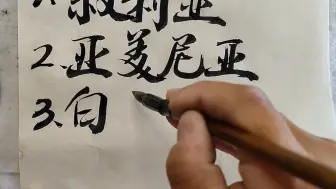 1.叙利亚
2.亚美尼亚
3.白